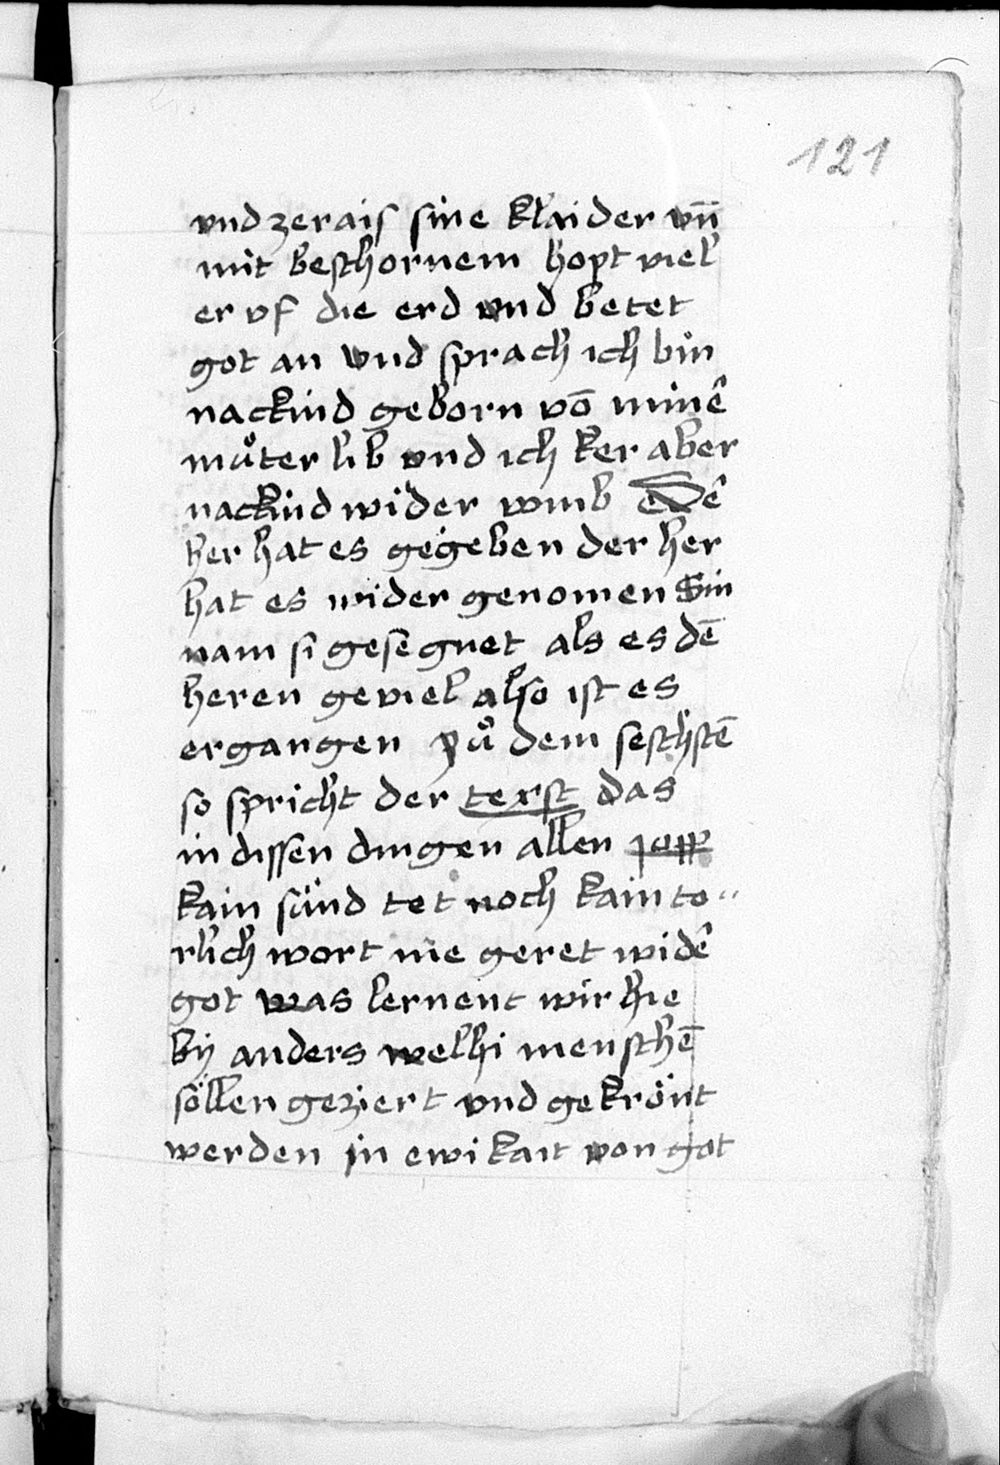 121
vnd zerais sine klaider vn̄
mit beschornem hopt viel
er vf die erd vnd betet
got an vnd sprach ich bin
nackind geborn vō minē
muͦter lib vnd ich ker aber
nackind wider vmb
her hat es gegeben der her
hat es wider genomen Sin
nam si gesegnet als es dē
heren geviel also ist es
ergangen zuͦ dem seschstē
so spricht der texst das
in dissen dingen allen jopp
kain sünd tet noch kain to〃
rlich wort nie geret widē
got was lernent wir hie
bÿ anders welhi menschē
söllen geziert vnd gekrönt
werden jn ewikait von got